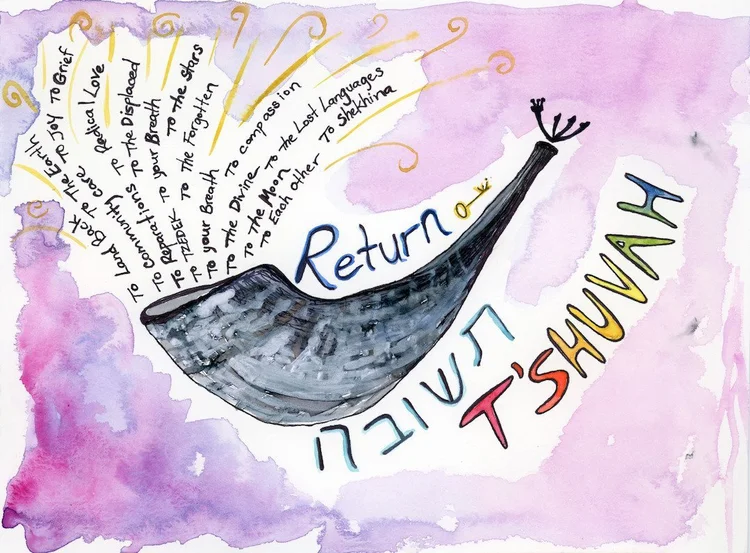 To Land Back To The Earth
To Community care To Joy To Grief
To Reparations Radical Love
To TZEDEK To the Displaced
To your Breath
To the Stars
To your Breath To the Forgotten
To the Divine To compassion
To the Moon To the Lost Languages
To Each Other To Shekhina
Return
תשובה
T'SHUVAH